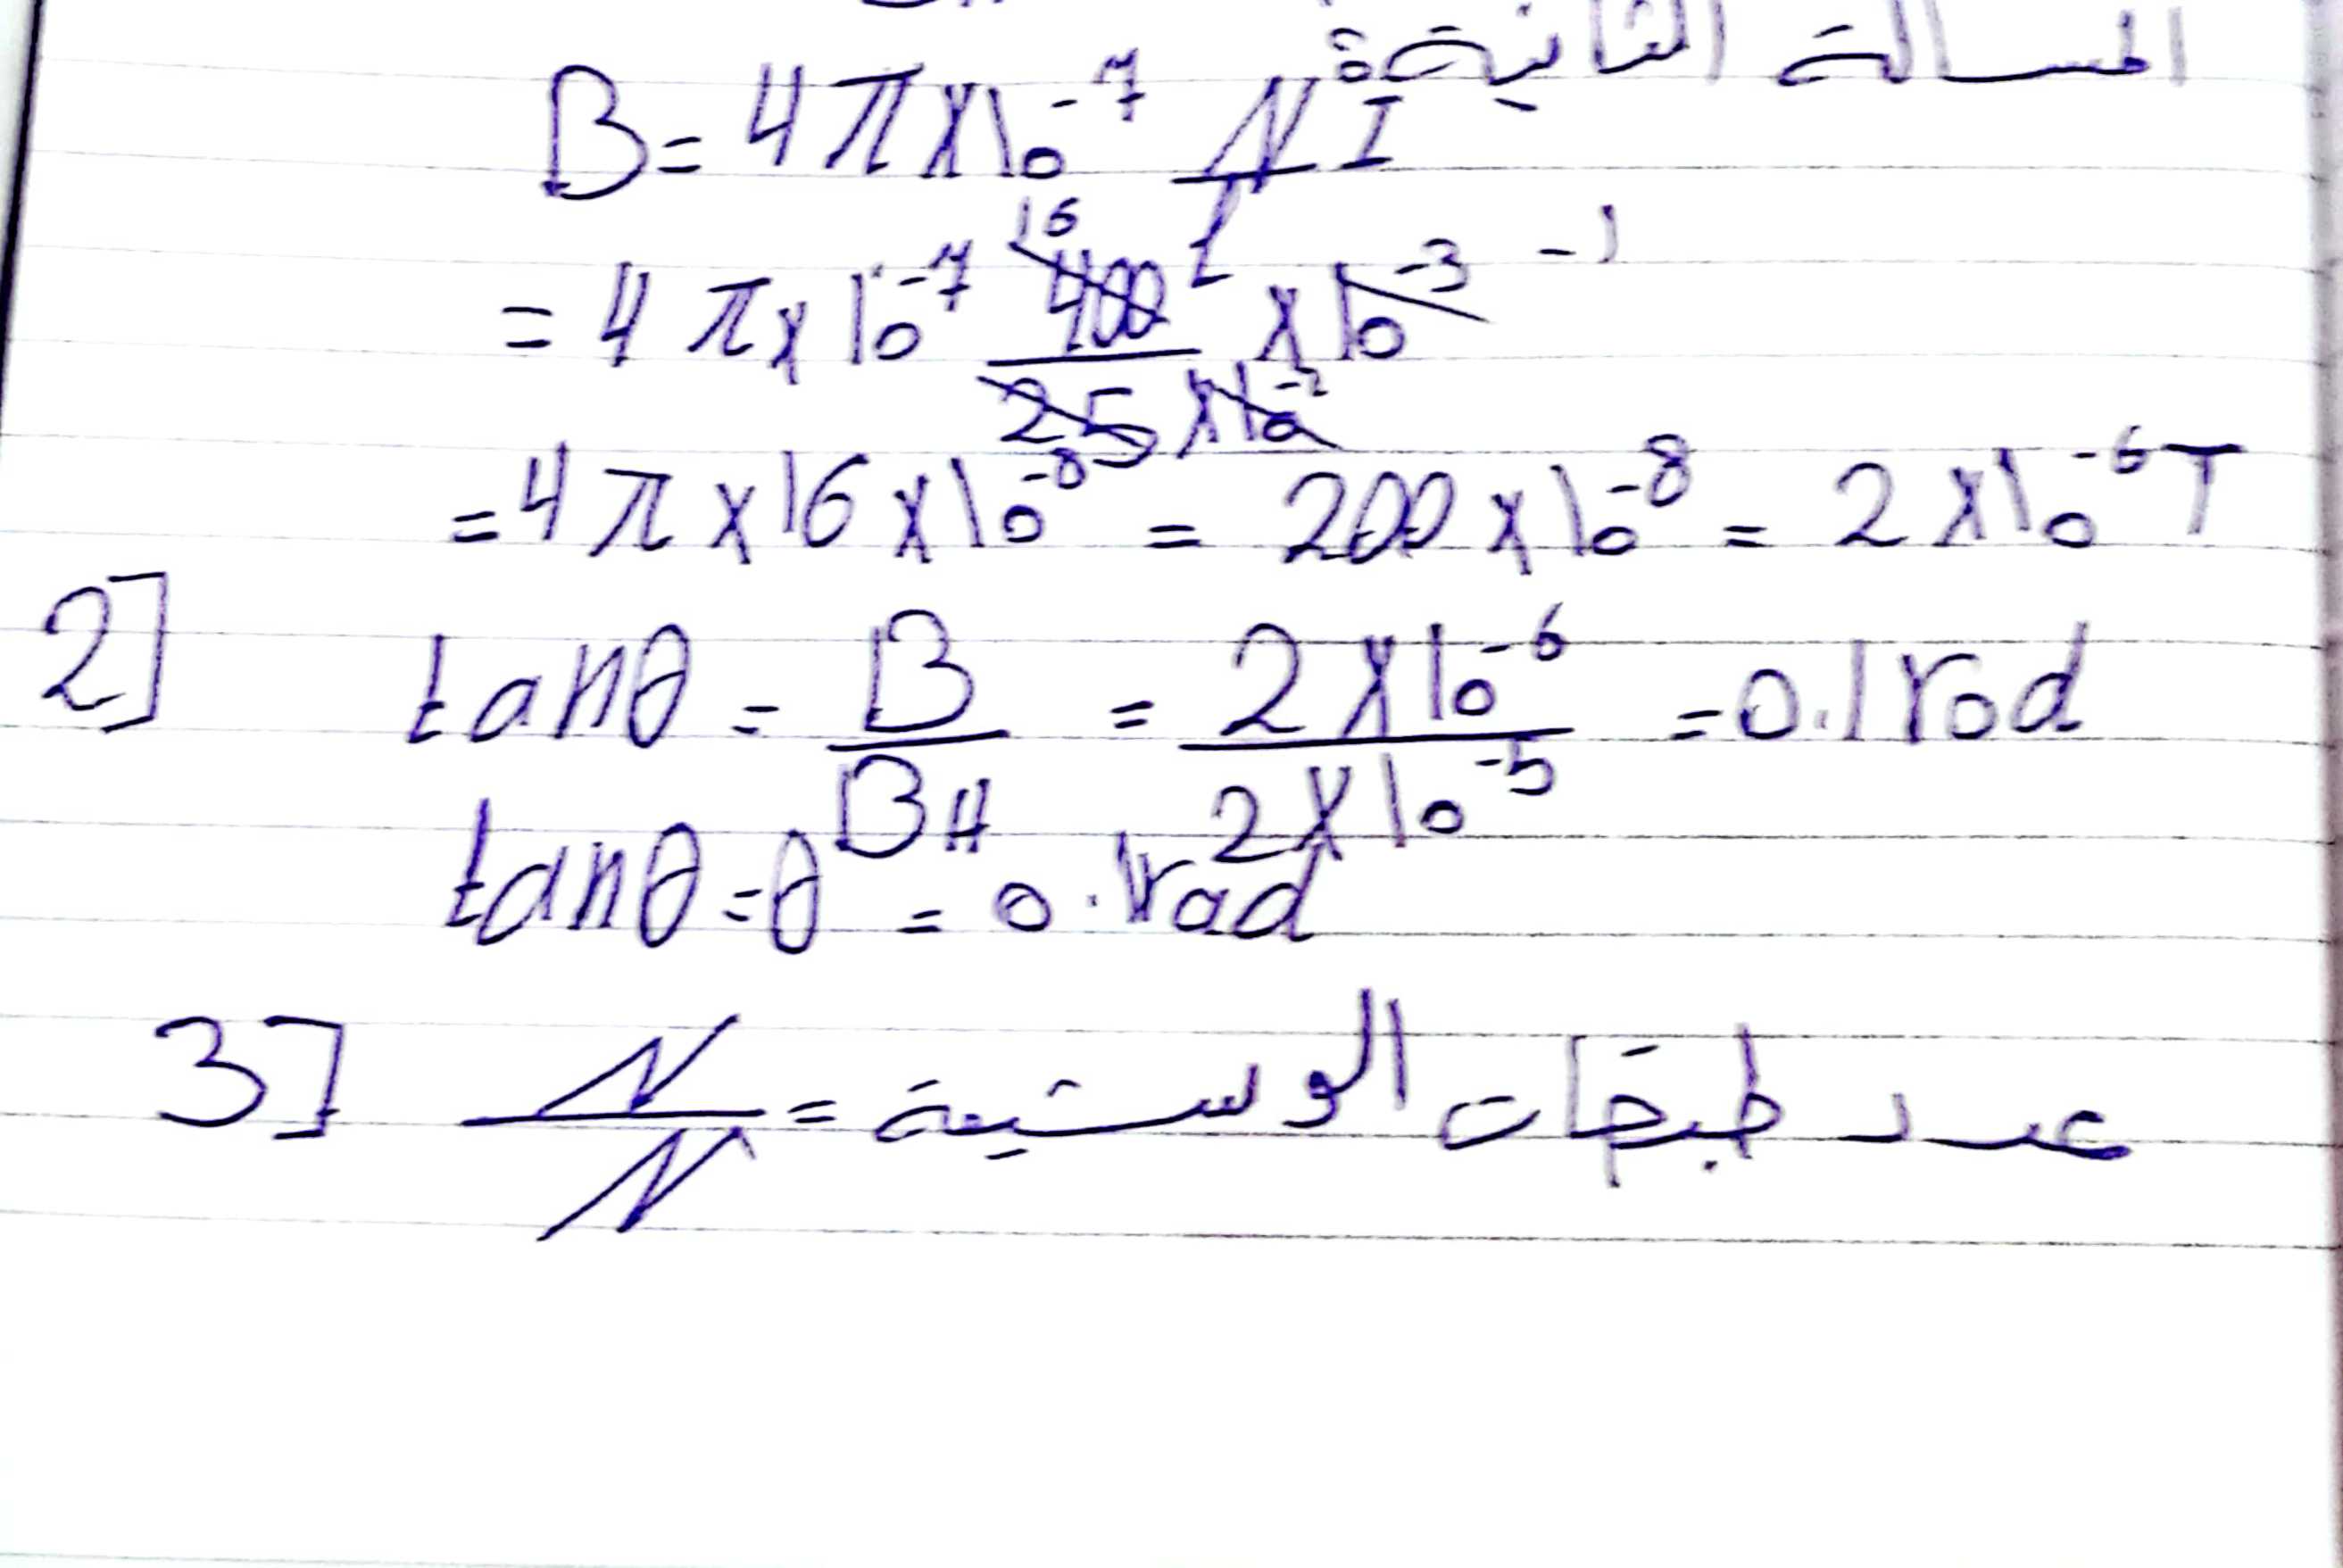 المسالة الثانية
B = 4π×10⁻⁷ NI/L
= 4π×10⁻⁷ 400/(25×10⁻²) ×10⁻³ 16 -1
= 4π×16×10⁻⁸ = 200×10⁻⁸ = 2×10⁻⁶ T
2] tanθ = B/BH = 2×10⁻⁶/2×10⁻⁵ = 0.1 rad
tanθ = θ = 0.1 rad
3] عدد طبقات الوستية = N/N`